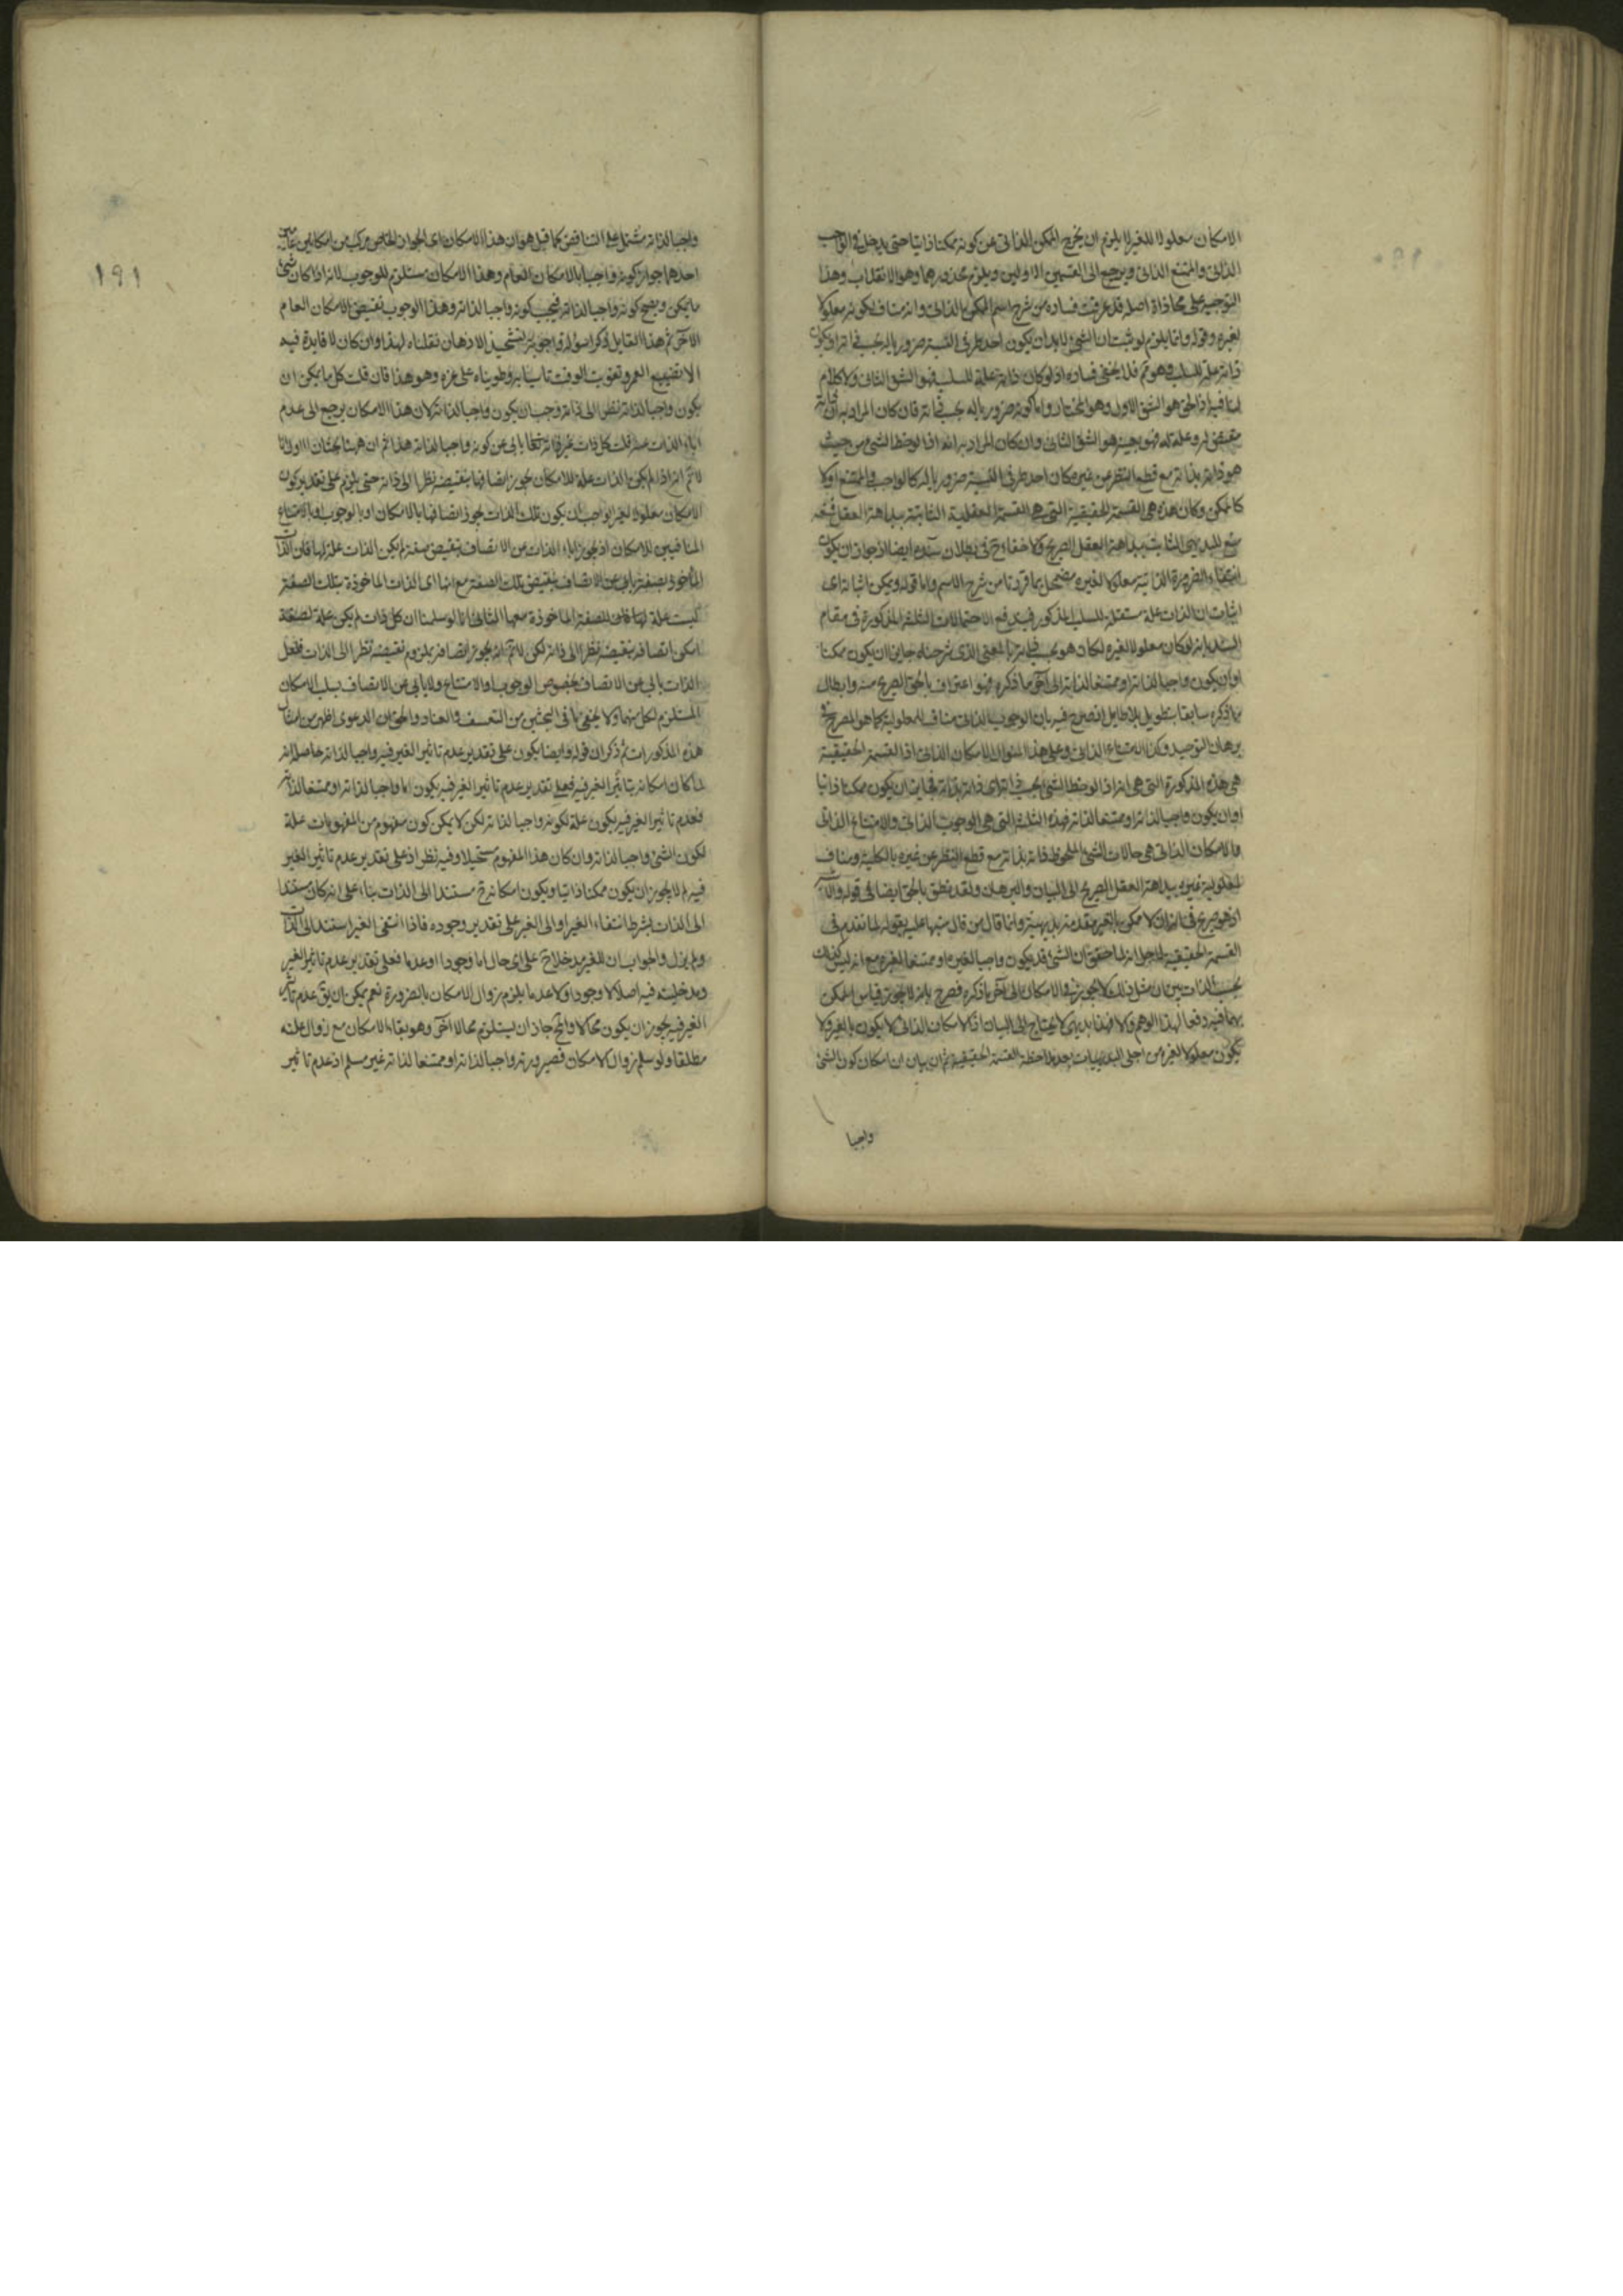 الامكان معلولا للغير لا يلزم ان يخرج الممكن الذاتي عن كونه ممكنا ذاتيا حتى يدخل في الواجب
الذاتي والممتنع الذاتي ويرجع الى القسمين الاولين ويلزم محذورهما وهو الانقلاب وهذا
التوجيه على محاذاة اصله قد عرفت فساده من شرح اسم الممكن بالذات وانه مناف لكونه معلولا
لغيره وقوله وانما يلزم لو ثبت ان الشيء لابد ان يكون احد طرفي النسبة ضروريا له بحسب ذاته او يكون
ذاته علة للسلب وهو ثم فلا يخفى فساده اذ لو كان ذاته علة للسلب فهو الشق الثاني ولا كلام
لنا فيه اذ الحق هو الشق الاول وهو المختار واما كونه ضروريا له بحسب ذاته فان كان المراد به ان ذاته
مقتض له وعلة له فهو بعينه هو الشق الثاني وان كان المراد به انه اذا لوحظ الشيء من حيث
هو ذاته بذاته مع قطع النظر عن غيره كان احد طرفي النسبة ضروريا له كالواجب والممتنع اولا
كالممكن وكان هذه هي القسمة الحقيقية التي هي القسمة العقلية الثابتة ببداهة العقل فمنعه
منع للبديهي الثابت ببداهة العقل الصريح ولا خفاء ح في بطلان سنده ايضا اذ جواز ان يكون
انتفاء الضرورة الذاتية معلولا لغيره مضمحل بما قررنا من شرح الاسم واما قوله ويمكن اثباته اي
اثبات ان الذات علة مستقلة للسلب المذكور فيندفع الاحتمالات الثلثة المذكورة في مقام
السند بانه لو كان معلولا لغيره لكان هو بحسب ذاته بالمعنى الذي شرحناه جايزا ان يكون ممكنا
او ان يكون واجبا لذاته او ممتنعا لذاته الى آخر ما ذكره فهو اعتراف بالحق الصريح منه وابطال
لما ذكره سابقا بتطويل بلا طايل اذ صرح فيه بان الوجوب الذاتي مناف للمعلولية كما هو المصرح في
برهان التوحيد وكذا الامتناع الذاتي وعلى هذا المنوال الامكان الذاتي اذ القسمة الحقيقية
هي هذه المذكورة التي هي انه اذا لوحظ الشيء بحسب ذاته اي ذاته بذاته فاما ان يكون ممكنا ذاتيا
او ان يكون واجبا لذاته او ممتنعا لذاته فهذه الثلثة التي هي الوجوب الذاتي والامتناع الذاتي
والامكان الذاتي هي حالات الشيء الملحوظ ذاته بذاته مع قطع النظر عن غيره بالكلية ومناف
لمعلولية غيره ببداهة العقل الصريح الى البيان والبرهان ولقد نطق بالحق ايضا في قوله
اذ هو صريح في انه ان لا ممكن بالغير مقدمة بديهية وانما قال من قال منبها عليه بقوله لما تقدم في
القسمة الحقيقية لاجل انه لما حقق ان الشيء قد يكون واجبا لغيره او ممتنعا لغيره مع انه ليس كذلك
بحسب الذات بين ان مثل ذلك لا يجوز في الامكان الى آخر ما ذكره فصرح بانه لا يجوز قياس الممكن
بهما فيه دفعا لهذا الوهم والا فهذا بديهي لا يحتاج الى البيان اذ الامكان الذاتي لا يكون بالغير ولا
يكون معلولا لغيره من اجلى البديهيات بعد ملاحظة القسمة الحقيقية ثم ان بيان ان امكان كون الشيء
واجبا
١٩١
واجبا لذاته مشتمل على التناقض كما قيل هو ان هذا الامكان اي الجواز الخاص مركب من امكانين عامين
احدهما جواز كونه واجبا بالامكان العام وهذا الامكان مستلزم للوجوب لانه اذا كان شيء
ما يمكن ويصح كونه واجبا لذاته فيجب كونه واجبا لذاته وهذا الوجوب نقيض الامكان العام
الآخر ثم هذا القايل ذكر اسؤلة واجوبة لتشحيذ الاذهان نقلناه لهذا وان كان لا فايدة فيه
الا تضييع العمر وتفويت الوقت تاسيا به وطويناه على غره وهو هذا فان قلت كل ما يمكن ان
يكون واجبا لذاته نظرا الى ذاته وجب ان يكون واجبا لذاته لان هذا الامكان يرجع الى عدم
اباء الذات عنه قلت كل ذات غير ذاته تعالى يابى عن كونه واجبا لذاته هذا ثم ان ههنا بحثان الاول انا
لا نم انه اذا لم يكن الذات علة للامكان يجوز اتصافها بنقيضه نظرا الى ذاته حتى يلزم على تقدير كون
الامكان معلولا لغير الواجب ان يكون تلك الذات يجوز اتصافها بالامكان او بالوجوب او بالامتناع
المنافيين للامكان اذ يجوز اباء الذات عن الاتصاف بنقيض صفة لم يكن الذات علة لها فان الذات
المأخوذ بصفة يابى عن الاتصاف بنقيض تلك الصفة مع انها اي الذات الماخوذة بتلك الصفة
ليست علة لها فان للصفة الماخوذة معها الثاني انا لو سلمنا ان كل ذات لم يكن علة لصفة
امكن اتصافه بنقيضه نظرا الى ذاته لكن لا نم انه يجوز اتصافه بملزوم نقيضه نظرا الى الذات فلعل
الذات يابى عن الاتصاف بخصوص الوجوب او الامتناع ولا يابى عن الاتصاف بسلب الامكان
المستلزم لكل منهما ولا يخفى ما في البحثين من التعسف والعناد والحق ان الدعوى اظهر من امثال
هذه المذكورات ثم ذكر ان قوله وايضا يكون على تقدير عدم تاثير الغير فيه واجبا لذاته حاصله انه
لما كان امكانه بتاثير الغير فيه فعلى تقدير عدم تاثير الغير فيه يكون اما واجبا لذاته او ممتنعا لذاته
فعدم تاثير الغير فيه يكون علة لكونه واجبا لذاته لكن لا يمكن كون مفهوم من المفهومات علة
لكون الشيء واجبا لذاته وان كان هذا المفهوم مستحيلا وفيه نظر اذ على تقدير عدم تاثير الغير
فيه لم لا يجوز ان يكون ممكنا ذاتيا ويكون امكانه ح مستندا الى الذات بناء على انه كان مستندا
الى الذات بشرط انتفاء الغير او الى الغير على تقدير وجوده فاذا انتفى الغير استند الى الذات
ولم يزل والجواب ان للغير مدخلا ح على اي حال اما وجودا او عدما فعلى تقدير عدم تاثير الغير
ومدخليته فيه اصلا لا وجودا ولا عدما يلزم زوال الامكان بالضرورة نعم يمكن ان يق عدم تاثير
الغير فيه يجوز ان يكون محالا والمح جاز ان يستلزم محالا آخر وهو بقاء الامكان مع زوال علته
مطلقا ولو سلم زوال الامكان فصيرورته واجبا لذاته او ممتنعا لذاته غير مسلم اذ عدم تاثير